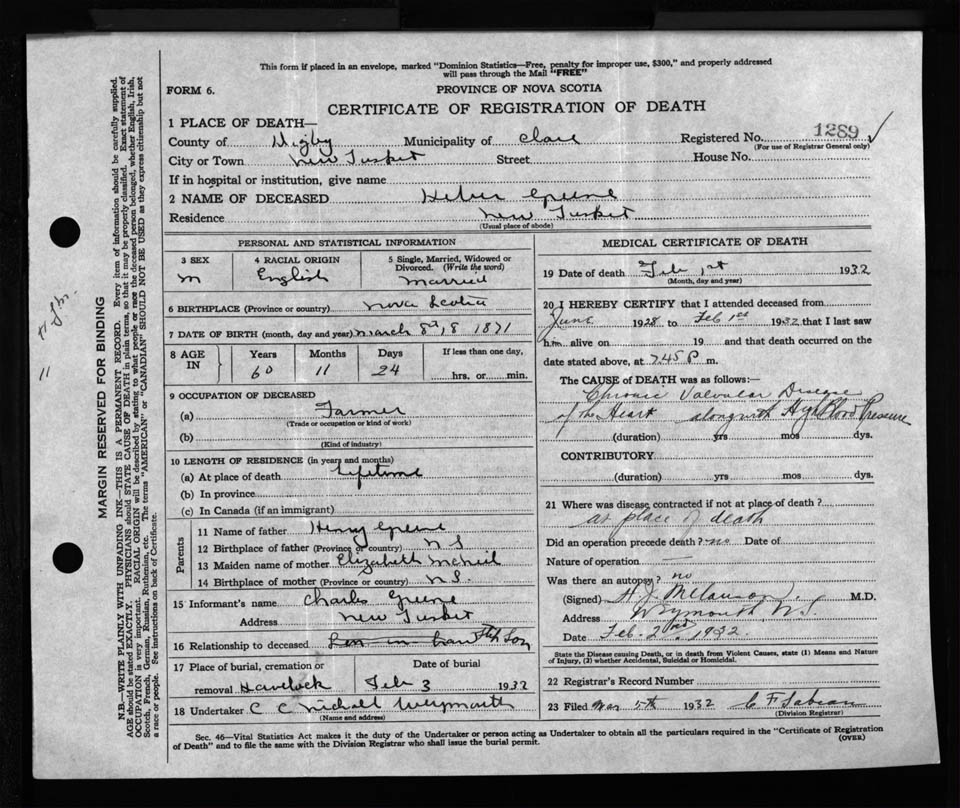 This form if placed in an envelope, marked "Dominion Statistics—Free, penalty for improper use, $300," and properly addressed
will pass through the Mail "FREE"
FORM 6.
PROVINCE OF NOVA SCOTIA
CERTIFICATE OF REGISTRATION OF DEATH
1 PLACE OF DEATH—
County of Digby Municipality of Clare Registered No. 1289
(For use of Registrar General only)
City or Town New Tusket Street House No.
If in hospital or institution, give name
2 NAME OF DECEASED Heber Greene
Residence New Tusket
(Usual place of abode)
PERSONAL AND STATISTICAL INFORMATION
3 SEX 4 RACIAL ORIGIN 5 Single, Married, Widowed or
Divorced. (Write the word)
m English married
6 BIRTHPLACE (Province or country) Nova Scotia
7 DATE OF BIRTH (month, day and year) march 8, 1871
8 AGE IN Years Months Days If less than one day,
60 11 24 hrs. or min.
9 OCCUPATION OF DECEASED
(a) Farmer
(Trade or occupation or kind of work)
(b)
(Kind of industry)
10 LENGTH OF RESIDENCE (in years and months)
(a) At place of death Lifetime
(b) In province
(c) In Canada (if an immigrant)
Parents
11 Name of father Henry Greene
12 Birthplace of father (Province or country) N S
13 Maiden name of mother Elizabeth McNeil
14 Birthplace of mother (Province or country) N S.
15 Informant's name Charles Greene
Address New Tusket
16 Relationship to deceased Son in law Son
17 Place of burial, cremation or Date of burial
removal Havelock Feb 3 1932
18 Undertaker C C Nichall Weymouth
(Name and address)
MEDICAL CERTIFICATE OF DEATH
19 Date of death Feb 1st 1932
(Month, day and year)
20 I HEREBY CERTIFY that I attended deceased from
June 1928 to Feb 1st 1932 that I last saw
him alive on 19 and that death occurred on the
date stated above, at 7.45 P m.
The CAUSE of DEATH was as follows:—
Chronic Valvular Disease
of the Heart along with High Blood Pressure
(duration) yrs mos dys.
CONTRIBUTORY
(duration) yrs mos dys.
21 Where was disease contracted if not at place of death?
at place of death
Did an operation precede death? no Date of
Nature of operation —
Was there an autopsy? no
(Signed) H. J. Melanson M.D.
Address Weymouth N.S
Date Feb. 2nd, 1932.
State the Disease causing Death, or in death from Violent Causes, state (1) Means and Nature
of Injury, (2) whether Accidental, Suicidal or Homicidal.
22 Registrar's Record Number
23 Filed Mar 5th 1932 C F Sabean
(Division Registrar)
Sec. 46—Vital Statistics Act makes it the duty of the Undertaker or person acting as Undertaker to obtain all the particulars required in the "Certificate of Registration
of Death" and to file the same with the Division Registrar who shall issue the burial permit.
(OVER)
MARGIN RESERVED FOR BINDING
N.B.—WRITE PLAINLY WITH UNFADING INK—THIS IS A PERMANENT RECORD. Every item of information should be carefully supplied.
AGE should be stated EXACTLY. PHYSICIANS should STATE CAUSE OF DEATH in plain terms, so that it may be properly classified. Exact statement of
OCCUPATION is very important. RACIAL ORIGIN will be described by stating to what people or race the deceased person belonged, whether English, Irish,
Scotch, French, German, Russian, Ruthenian, etc. The terms "AMERICAN" or "CANADIAN" SHOULD NOT BE USED as they express citizenship but not
a race or people. See instructions on back of Certificate.